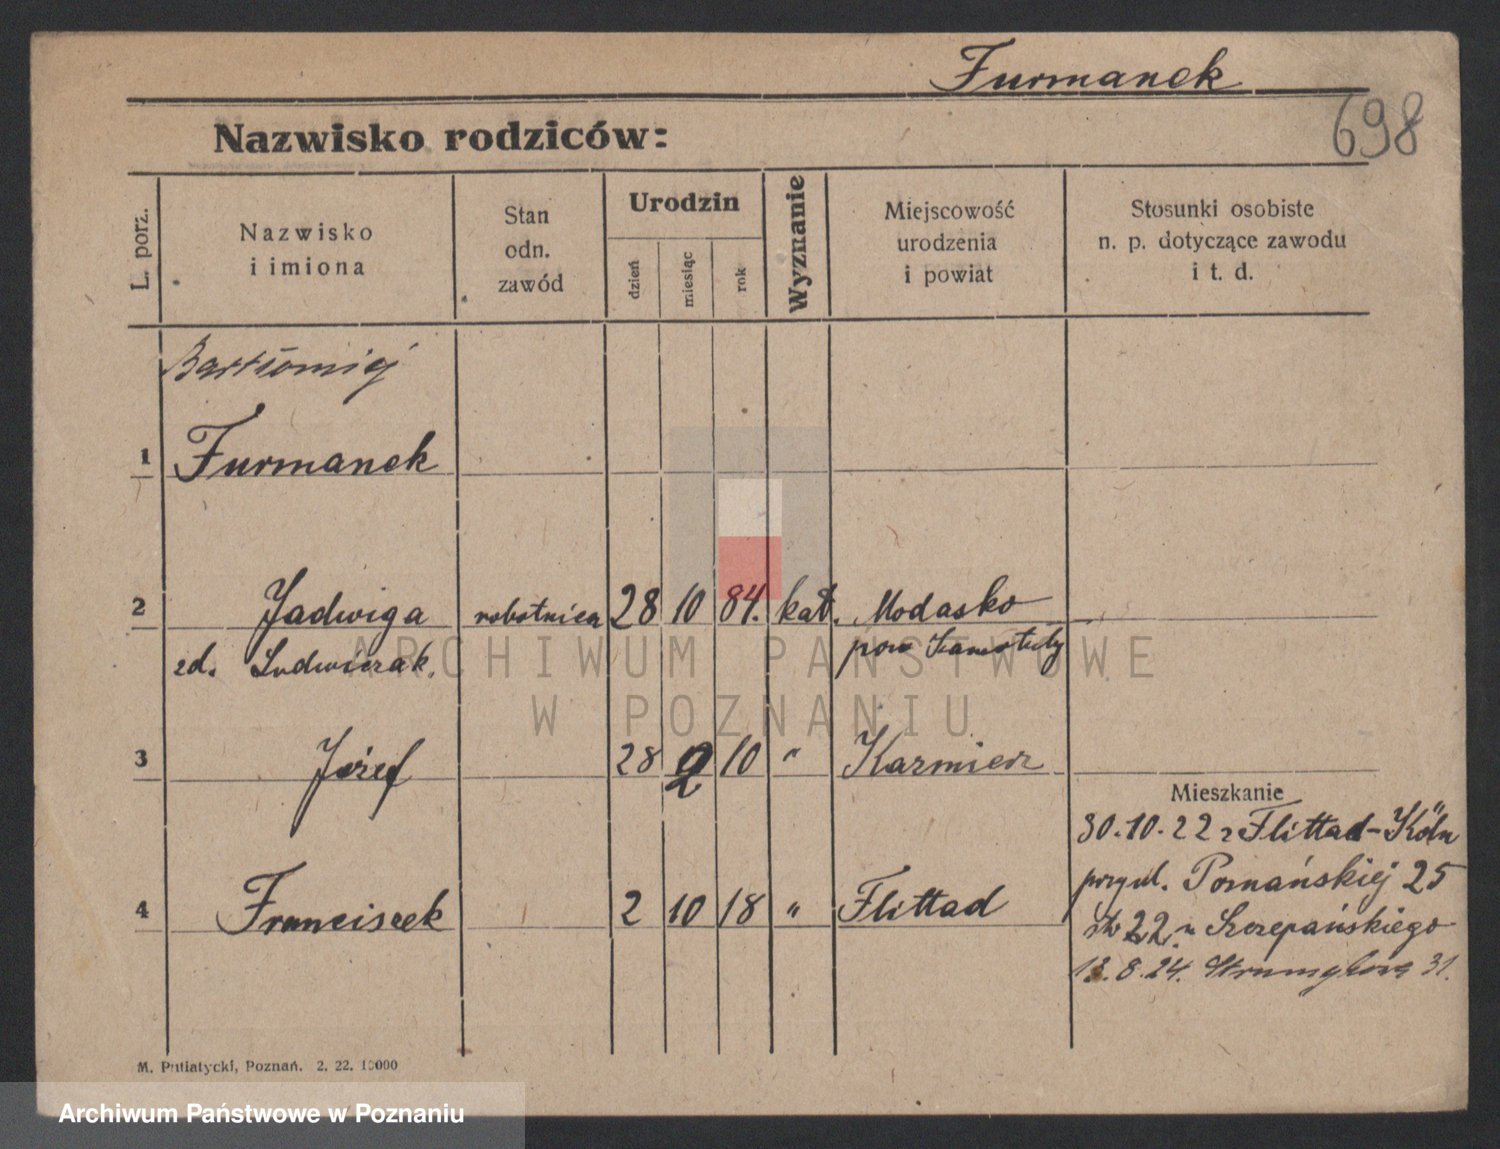 Furmanek
698
Nazwisko rodziców:
L. porz.
Nazwisko
i imiona
Stan
odn.
zawód
Urodzin
dzień
miesiąc
rok
Wyznanie
Miejscowość
urodzenia
i powiat
Stosunki osobiste
n. p. dotyczące zawodu
i t. d.
Bartłomiej
1 Furmanek
2 Jadwiga robotnica 28 10 84. kat. Modasko
zd. Ludwiczak. pow Szamotuły
3 Józef 28 2 10 " Kazmierz
Mieszkanie
30.10.22 z Flittad-Köln
4 Franciszek 2 10 18 " Flittad
Poznańskiej 25
22 u Szczepańskiego
13.8.24. 31.
M. Putiatycki, Poznań. 2. 22. 10000
ARCHIWUM PAŃSTWOWE
W POZNANIU
Archiwum Państwowe w Poznaniu